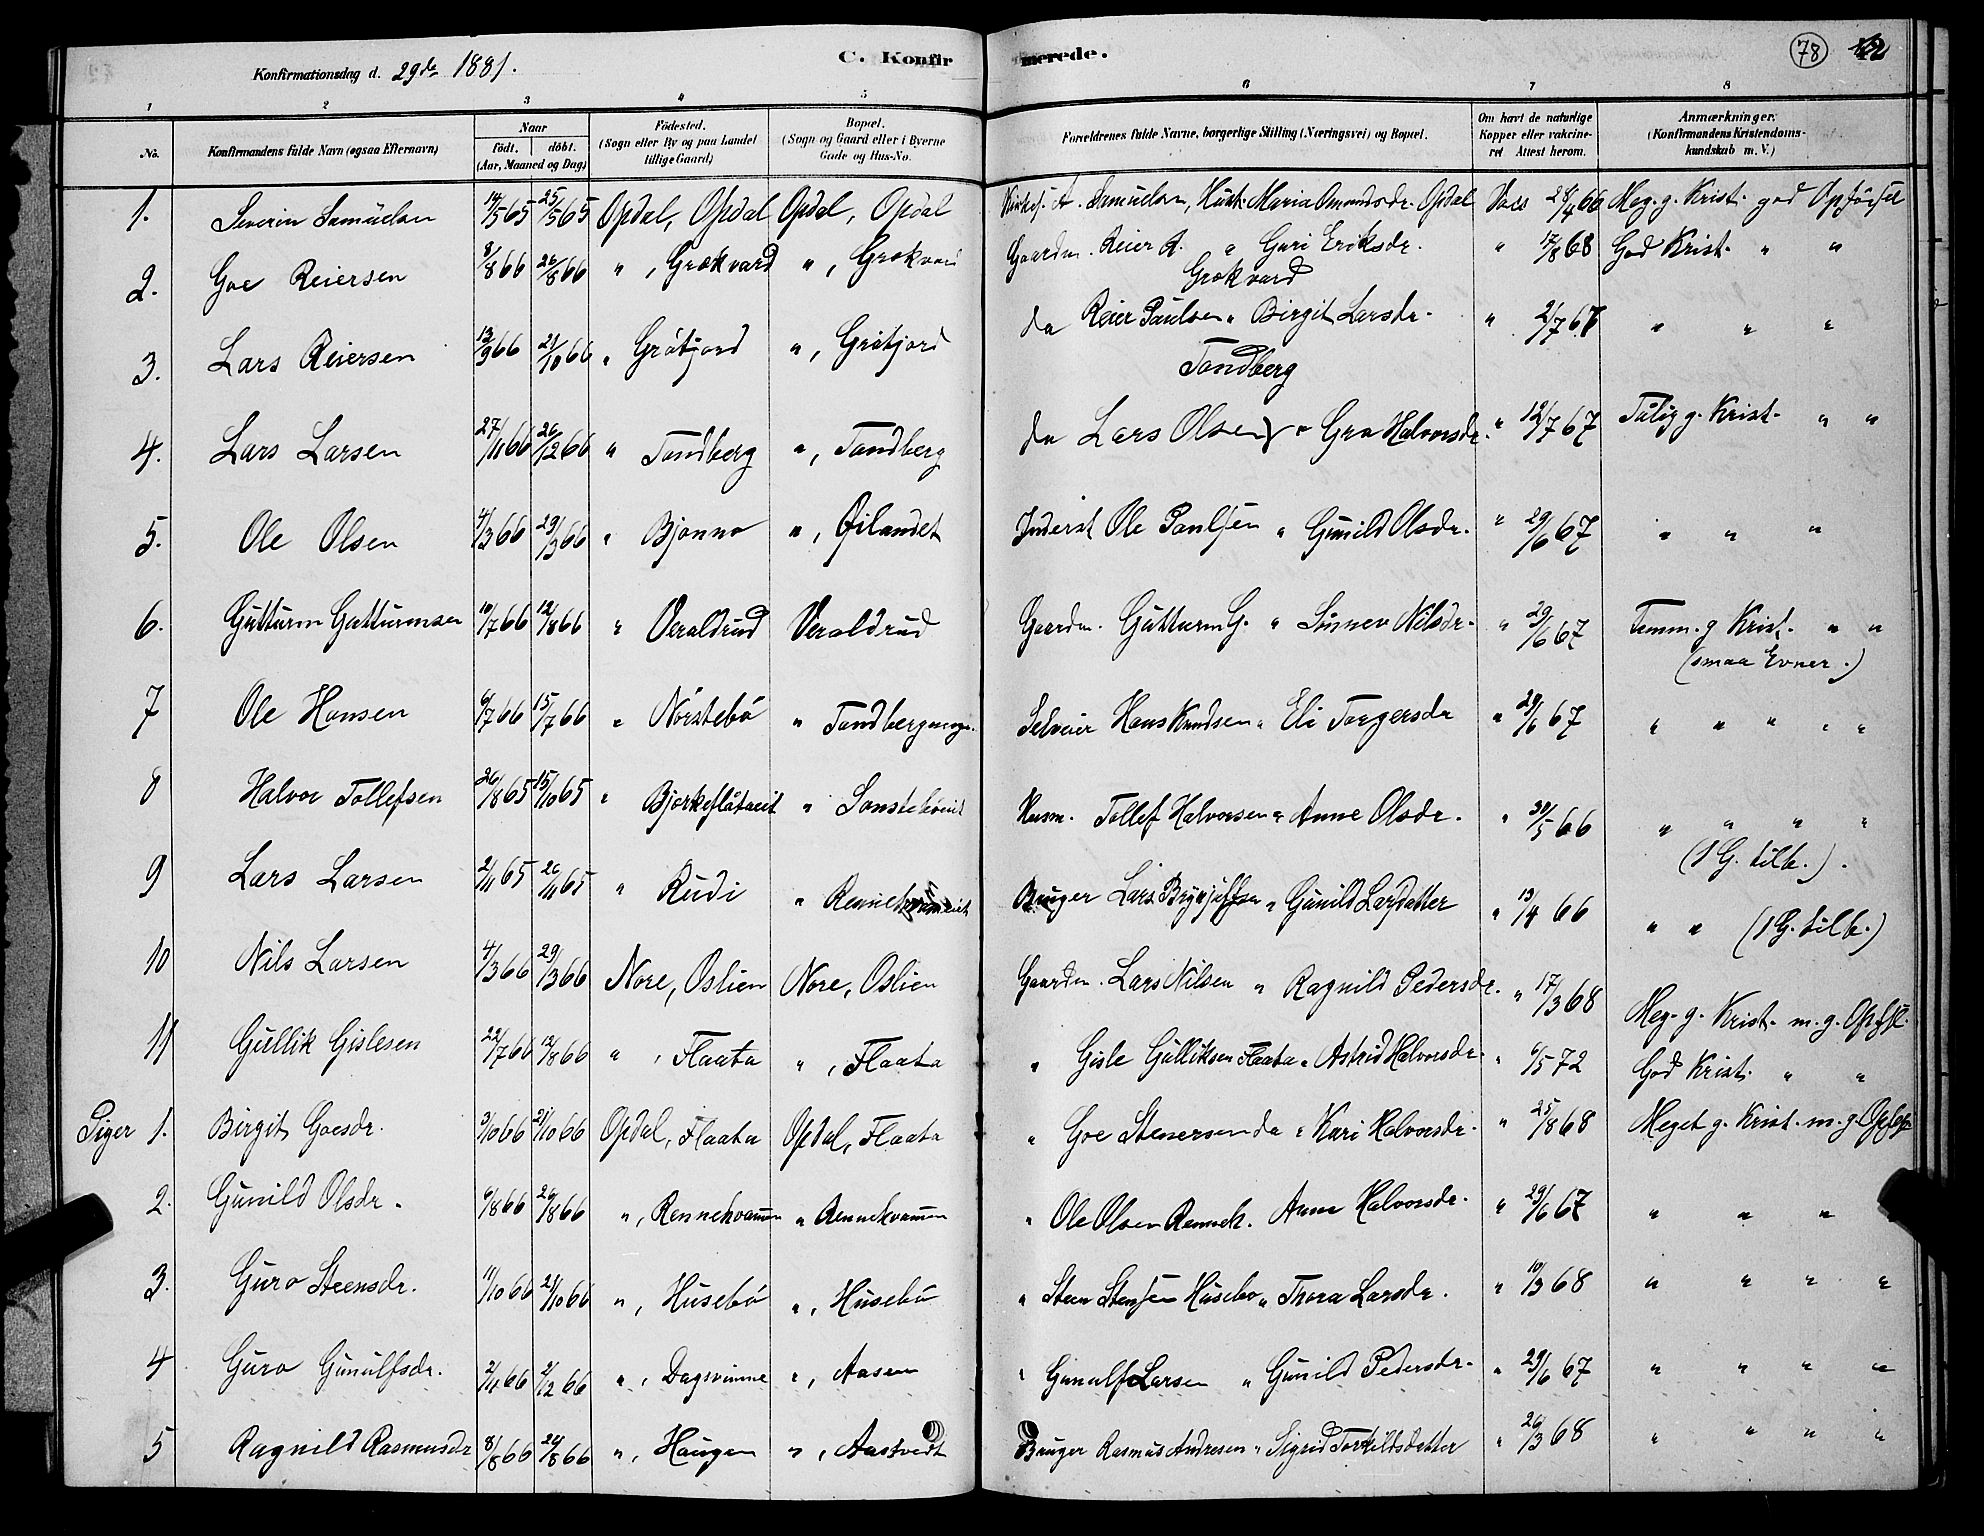 C. Konfirmerede.
78
Konfirmationsdag d. 29de 1881.
1 2 3 4 5 6 7 8
No. Konfirmandens fulde Navn (ogsaa Efternavn) Naar født. døbt. (Aar, Maaned og Dag) Fødested. (Sogn eller By og paa Landet tillige Gaard) Bopæl. (Sogn og Gaard eller i Byerne Gade og Hus-No. Forældrenes fulde Navne, borgerlige Stilling (Næringsvei) og Bopæl. Om havt de naturlige Kopper eller vakcineret Attest herom. Anmærkninger. (Konfirmandens Kristendomskundskab m. V.)
1. Severin Samuelsen 14/5 65 25/5 65 Opdal, Opdal Opdal, Opdal A. Samuelsen, Hust. Maria Amundsdr. Opdal Vacc 28/4 66 Meg. g. Krist. god Opførsel
2. Goe Reiersen 8/8 66 26/8 66 " , Grøkvard " , Grøkvard Gaardm. Reier A. " Guri Eriksdr. " 17/8 68 God Krist. " "
Grøkvard
3. Lars Reiersen 13/9 66 21/10 66 " Gråtjord " , Gråtjord do Reier Paulsen " Birgit Larsdr. " 2/7 67 " " "
Tandberg
4. Lars Larsen 27/11 66 26/12 66 " Tandberg " , Tandberg do Lars Olsen " Gro Halvorsdr. " 12/7 67 Tålig g. Krist. " "
5. Ole Olsen 4/3 66 29/3 66 " Bjønno " , Øilandet Inderst Ole Paulsen " Gunild Olsdr. " 29/6 67 " " "
6. Gutturm Gutturmsen 10/7 66 12/8 66 " Veraldrud Veraldrud Gaardm. Gutturm G. " Sinnev Nilsdr. " 29/6 67 Temm. g Krist. " "
(smaa Evner.)
7 Ole Hansen 6/7 66 15/7 66 " Nørstebø " Tandberg Selveier Hans Knudsen " Eli Torgersdr " 29/6 67 " " " " "
8 Halvor Tollefsen 26/8 65 15/10 65 " Bjørkeflåtaeit " Sønstebøeit Husm. Tollef Halvorsen " Anne Olsdr. " 31/5 66 " " " "
(1 G. tilb.).
9 Lars Larsen 2/11 65 26/11 65 " Rudi " Bruger Lars Brynjulfsen " Gunild Larsdatter " 13/4 66 " " (1 G. tilb.)
10 Nils Larsen 4/3 66 29/3 66 Nore, Oslien Nore, Oslien Gaardm. Lars Nilsen " Ragnild Pedersdr. " 17/3 68 Meg. g. Krist. m. g. Opfsl.
11 Gullik Gislesen 22/7 66 12/8 66 " , Flaata " , Flaata " Gisle Gulliksen Flaata " Astrid Halvorsdr. " 6/5 72 God Krist. " "
Piger 1. Birgit Goesdr. 3/10 66 21/10 66 Opdal, Flaata Opdal, Flaata " Goe Stenersen do " Kari Halvorsdr. " 25/8 68 Meget g. Krist. m. g. Opfsl
2. Gunild Olsdr. 6/8 66 26/8 66 " , Rennehvammen " Rennehvammen " Ole Olsen Renneh. Anne Halvorsdr. " 29/6 67 " " "
3. Guro Steensdr. 11/10 66 21/10 66 " , Husebø " , Husebø " Steen Stensen Husebø " Thora Larsdr. " 10/3 68 " " " "
4 Guro Gunulfsdr. 2/11 66 2/12 66 " , Dagsvinne " , Aasen " Gunulf Larsen " Gunild Pedersdr. " 29/6 67 " " " "
5 Ragnild Rasmusdr 8/8 66 26/8 66 " , Haugen " , Aastvedt Bruger Rasmus Andresen " Sigrid Torkildsdatter " 26/3 68 " " " "